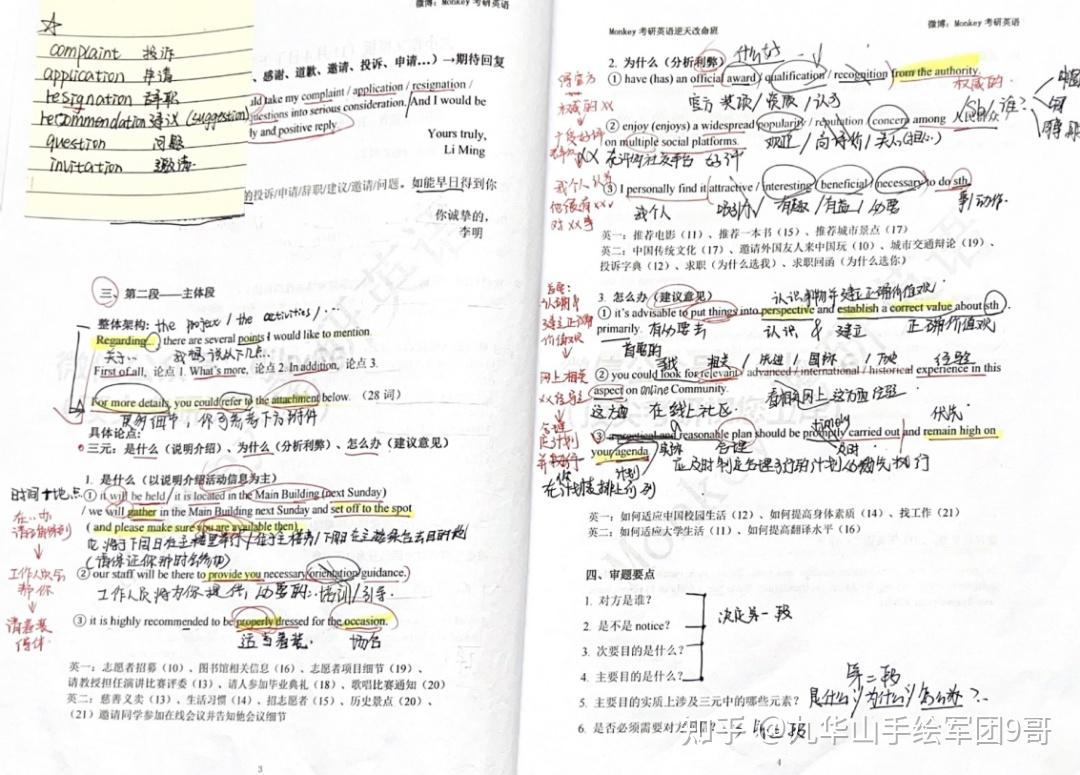 微博：Monkey 考研英语
☆
complaint 投诉
application 申请
resignation 辞职
recommendation 建议 (suggestion)
question 问题
invitation 邀请
、感谢、道歉、邀请、投诉、申请…）→期待回复
ld take my complaint / application / resignation /
uestions into serious consideration. And I would be
ly and positive reply.
Yours truly,
Li Ming
的投诉/申请/辞职/建议/邀请/问题。如能早日得到你
你诚挚的，
李明
三、第二段——主体段
整体架构：the project / the activities / …
Regarding… there are several points I would like to mention.
关于… 我想说以下几点…
First of all, 论点 1. What's more, 论点 2. In addition, 论点 3.
For more details, you could refer to the attachment below. （28 词）
更多细节，你可参考下方附件
具体论点：
三元：是什么（说明介绍）、为什么（分析利弊）、怎么办（建议意见）
1. 是什么（以说明介绍活动信息为主）
时间+地点
① it will be held / it is located in the Main Building (next Sunday)
/ we will gather in the Main Building next Sunday and set off to the spot
( and please make sure you are available then)
(请保证你那时有参加)
② our staff will be there to provide you necessary orientation/guidance.
工作人员将为你提供，必要的…培训/引导
③ it is highly recommended to be properly dressed for the occasion.
适当着装 场合
英一：志愿者招募（10）、图书馆相关信息（16）、志愿者项目细节（19）、
请教授担任演讲比赛评委（13）、请人参加毕业典礼（18）、歌唱比赛通知（20）
英二：慈善义卖（13）、生活习惯（14）、招志愿者（15）、历史景点（20）、
（21）邀请同学参加在线会议并告知他会议细节
3
Monkey 考研英语逆天改命班
微博：Monkey 考研英语
2. 为什么（分析利弊）
① have (has) an official award / qualification / recognition from the authority.
官方 奖项/资质/认可
权威的
② enjoy (enjoys) a widespread popularity / reputation / concern among
on multiple social platforms.
③ I personally find it attractive / interesting / beneficial / necessary to do sth.
我个人 吸引 / 有趣 / 有益 / 必要 事/动作
英一：推荐电影（11）、推荐一本书（15）、推荐城市景点（17）
英二：中国传统文化（17）、邀请外国友人来中国玩（10）、城市交通辩论（19）、
投诉字典（12）、求职（为什么选我）、求职回函（为什么选你）
3. 怎么办（建议意见）
认识事物并建立正确价值观
① it's advisable to put things into perspective and establish a correct value about sth
primarily. 有必要去 认识 & 建立 正确价值观
首要的
寻找 相关 / 先进 / 国际 / 历史 经验
② you could look for relevant / advanced / international / historical experience in this
aspect on online Community.
这方面 在线上社区
③ a practical and reasonable plan should be promptly carried out and remain high on
your agenda
timely
优先
英一：如何适应中国校园生活（12）、如何提高身体素质（14）、找工作（21）
英二：如何适应大学生活（11）、如何提高翻译水平（16）
四、审题要点
1. 对方是谁？
2. 是不是 notice？
3. 次要目的是什么？
4. 主要目的是什么？
决定第一段
第二段
5. 主要目的实质上涉及三元中的哪些元素？ 是什么/为什么/怎么办？
6. 是否必须需要对方
4
知乎 @九华山手绘军团9哥